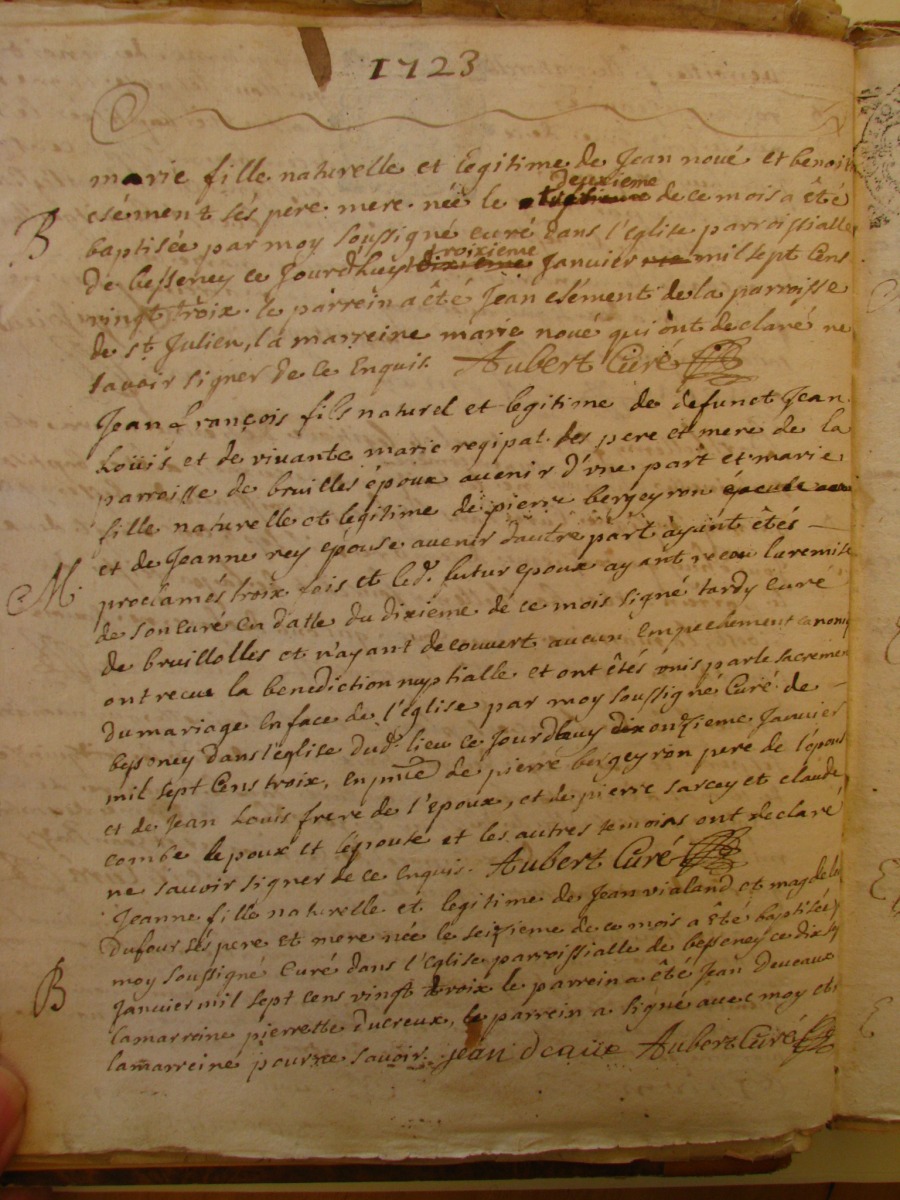 1723
marie fille naturelle et legitime de Jean noué et benoit
clément sés pere mere née le deuxieme de ce mois a êté
B
baptisée par moy soussigné curé dans l'église parroissialle
de besseney ce jourdhuy troixieme dixieme janvier mil sept cens
vingt troix. le parrein a êté Jean clément de la parroisse
de st Julien, la marreine marie noué qui ont declaré ne
savoir signer de ce Enquis. Aubert Curé
Jean françois fils naturel et legitime de defunct Jean
Loüis et de vivante marie regipal. des pere et mere de la
parroisse de bruilles époux avenir d'vne part et marie
fille naturelle et legitime de pierre bergeyron
et de Jeanne rey epouse avenir d'autre part ayant êtés
M.
proclamés troix fois et led. futur epoux ayant receu la remise
de son curé en datte du dixieme de ce mois signé tardy curé
de bruillolles et n'ayant decouvert aucun empechement canoniq
ont recue la benediction nuptialle et ont êtés vnis par le sacremen
du mariage en face de l'église par moy soussigné Curé de
besseney dans l'église dud. lieu ce jourdhuy dix onzieme Janvier
mil sept Cens troix, en pnce de pierre bergeyron pere de l'épous
et de Jean Louis frere de l'epoux, et de pierre sarcey et claude
combe lepoux et lépouse et les autres temoins ont declaré
ne savoir signer de ce Enquis. Aubert Curé
Jeanne fille naturelle et legitime de Jean vialand et magdel
dufour sés pere et mere née le seizieme de ce mois a êté baptisée p
moy soussigné Curé dans l'église parroissialle de besseney ce dix sep
B
Janvier mil sept cens vingt troix le parrein a êté Jean deveaux
la marreine pierrette ducreux, le parrein a signé avec moy et
la marreine pour ne savoir. jean deaux Aubert Curé